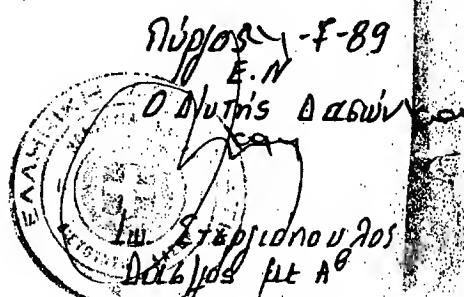 Πύργος -7-89
Ε.Ν
Ο Δ/ντής Δασών
Ιω. Στεργιόπουλος
Δασ/γος με Αθ
ΕΛΛΗΝΙΚΗ